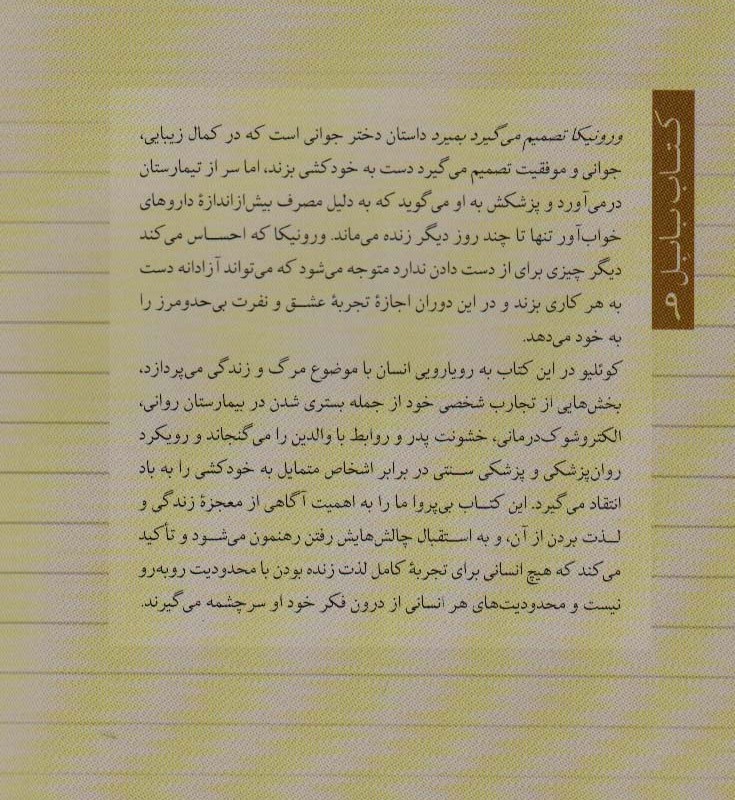 ورونیکا تصمیم می‌گیرد بمیرد داستان دختر جوانی است که در کمال زیبایی،
جوانی و موفقیت تصمیم می‌گیرد دست به خودکشی بزند، اما سر از تیمارستان
درمی‌آورد و پزشکش به او می‌گوید که به دلیل مصرف بیش‌ازاندازهٔ داروهای
خواب‌آور تنها تا چند روز دیگر زنده می‌ماند. ورونیکا که احساس می‌کند
دیگر چیزی برای از دست دادن ندارد متوجه می‌شود که می‌تواند آزادانه دست
به هر کاری بزند و در این دوران اجازهٔ تجربهٔ عشق و نفرت بی‌حدومرز را
به خود می‌دهد.
کوئلیو در این کتاب به رویارویی انسان با موضوع مرگ و زندگی می‌پردازد،
بخش‌هایی از تجارب شخصی خود از جمله بستری شدن در بیمارستان روانی،
الکتروشوک‌درمانی، خشونت پدر و روابط با والدین را می‌گنجاند و رویکرد
روان‌پزشکی و پزشکی سنتی در برابر اشخاص متمایل به خودکشی را به باد
انتقاد می‌گیرد. این کتاب بی‌پروا ما را به اهمیت آگاهی از معجزهٔ زندگی و
لذت بردن از آن، و به استقبال چالش‌هایش رفتن رهنمون می‌شود و تأکید
می‌کند که هیچ انسانی برای تجربهٔ کامل لذت زنده بودن با محدودیت روبه‌رو
نیست و محدودیت‌های هر انسانی از درون فکر خود او سرچشمه می‌گیرند.
کتاب بابل